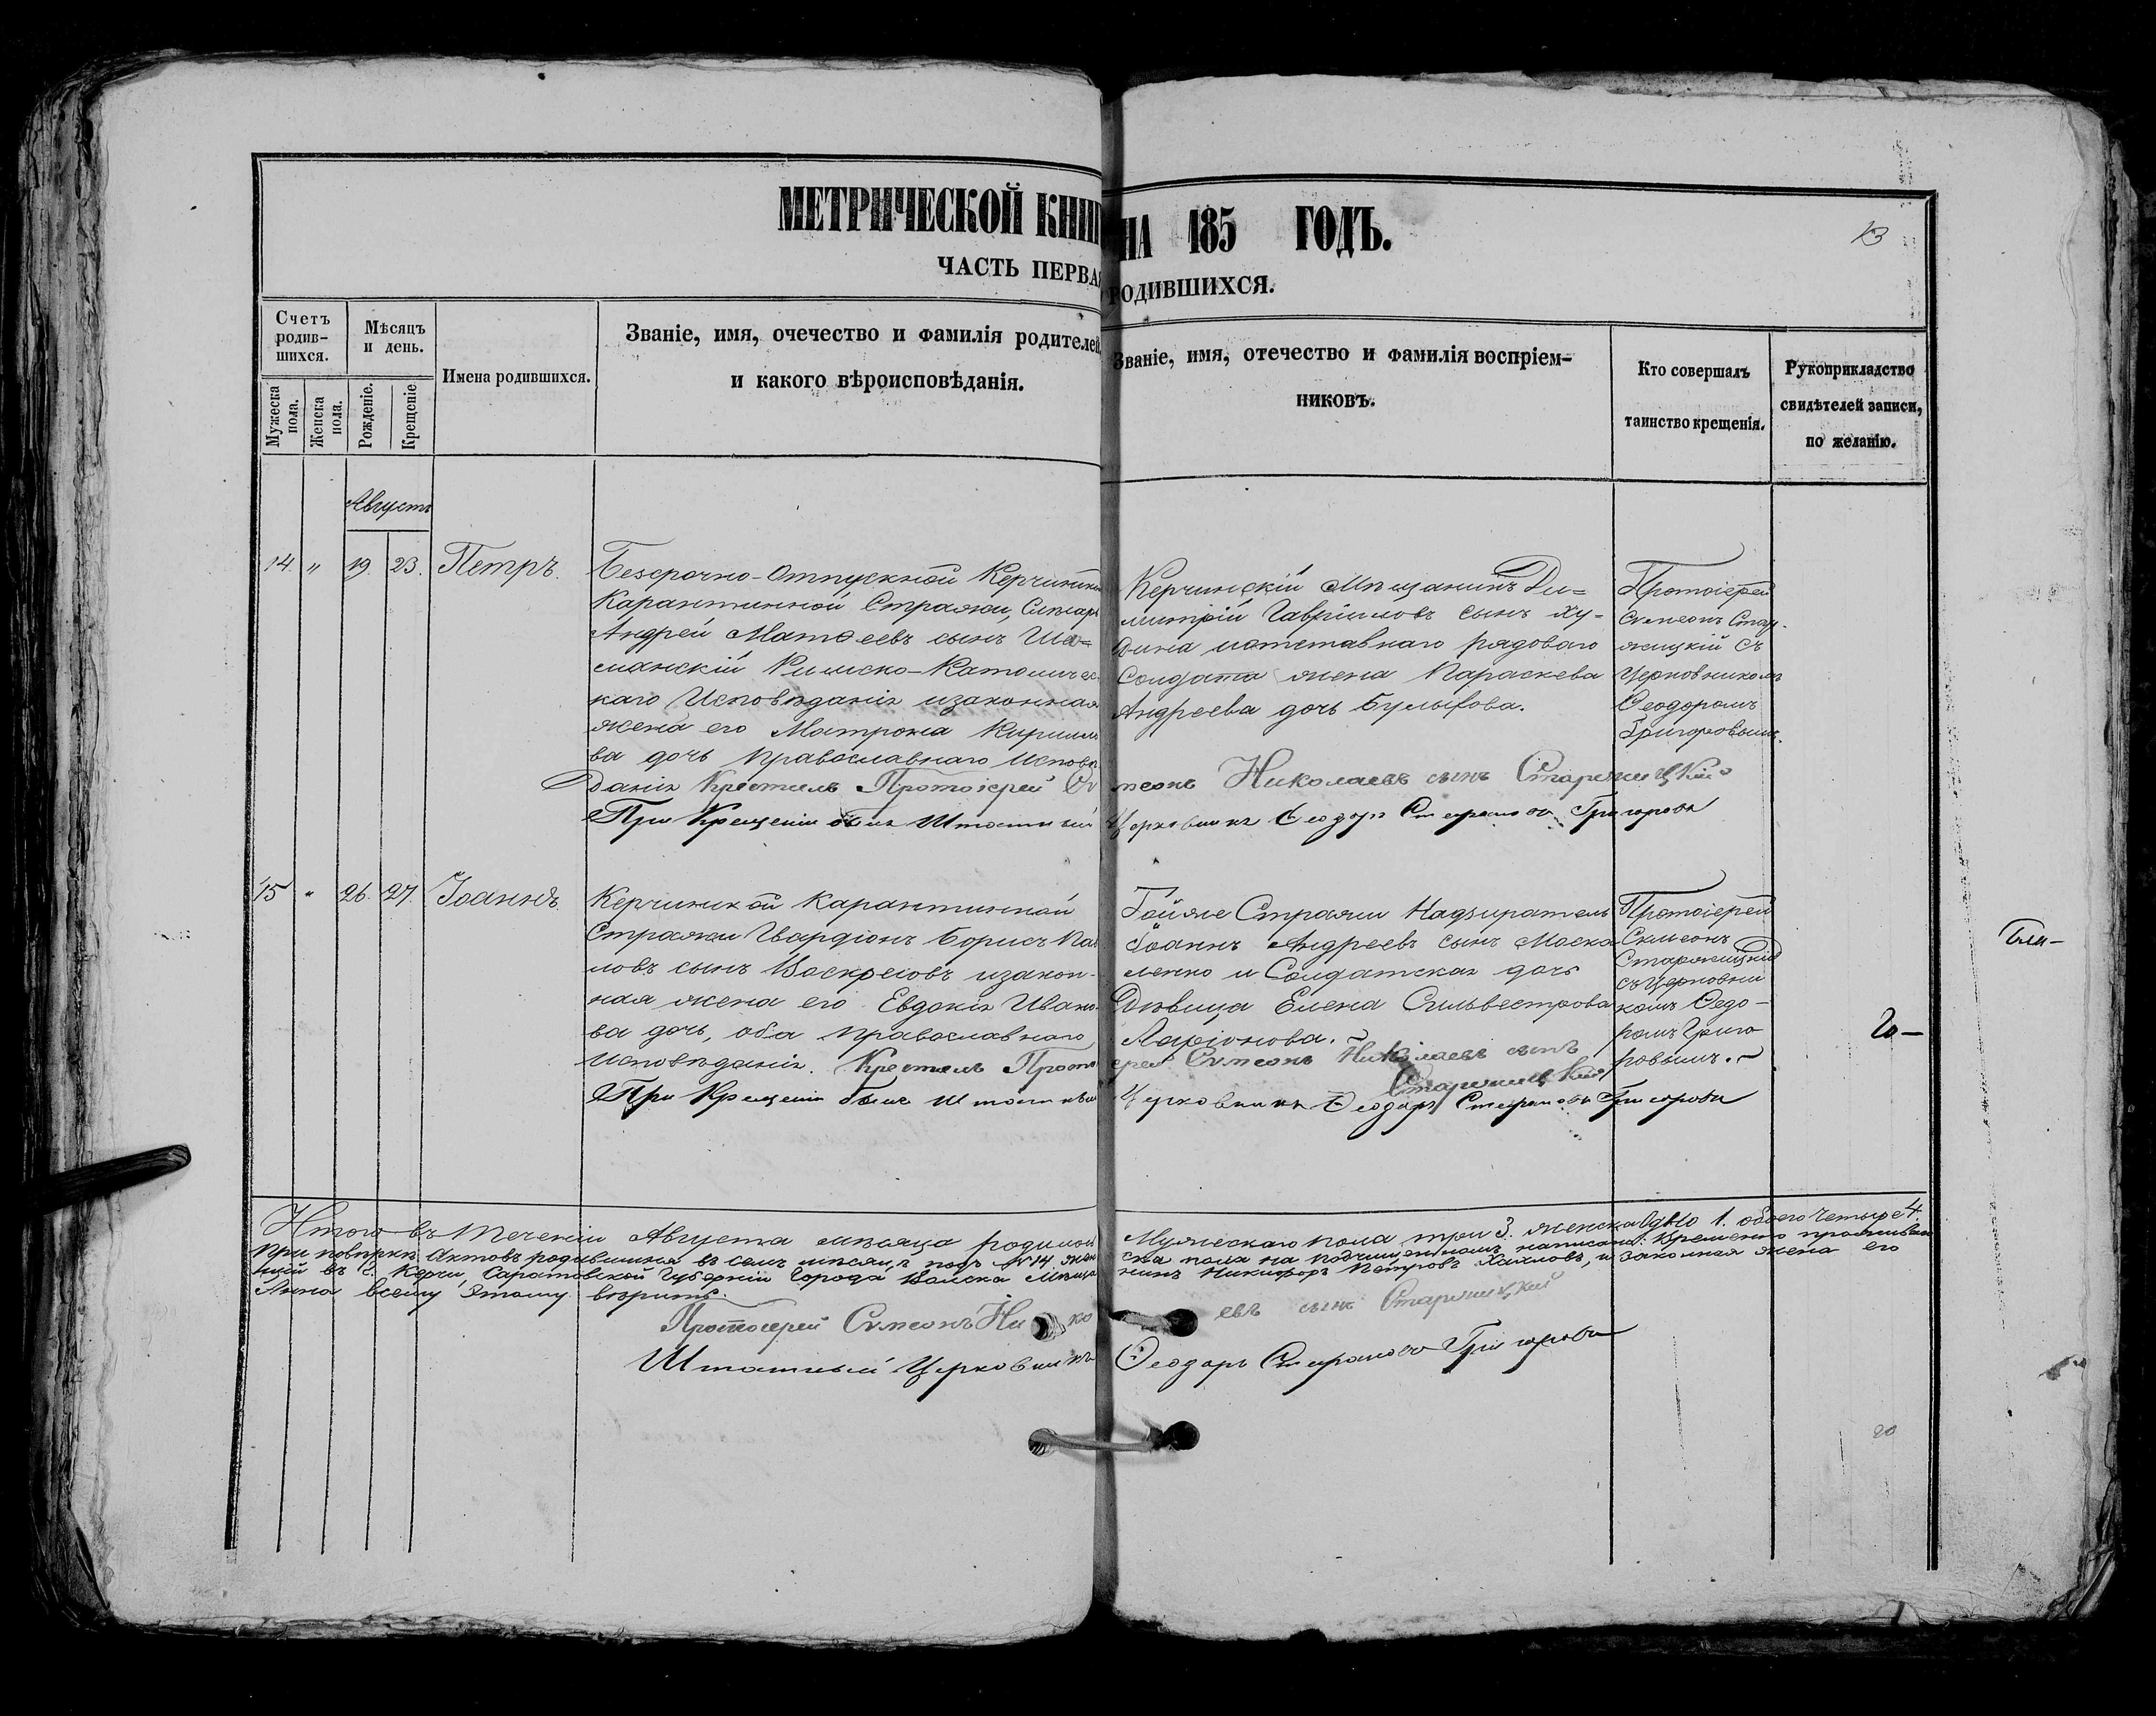 МЕТРИЧЕСКОЙ КНИГ НА 185 ГОДЪ.
13
ЧАСТЬ ПЕРВАЯ РОДИВШИХСЯ.
Счетъ родив-шихся.
Мужеска пола.
Женска пола.
Мѣсяцъ и день.
Рожденіе.
Крещеніе
Имена родившихся.
Званіе, имя, очечество и фамилія родителей,
и какого вѣроисповѣданія.
Званіе, имя, отечество и фамилія воспріем-
никовъ.
Кто совершалъ
таинство крещенія.
Рукоприкладство
свидѣтелей записи,
по желанію.
Августъ
14. " 19. 23. Петръ.
Безсрочно-Отпускной Керчинской
Карантинной Стражи,
Андрей Матѳеевъ сынъ Ши=
манскій Римско-Католичес
каго Исповѣданія и законная
жена его Матрона Кирилло
ва дочь Православнаго Исповѣ
данія Крестилъ Протоіерей Сѵ
При Крещеніи былъ Штатный
Керчинскій Мѣщанинъ Ди=
митрій Гавріиловъ сынъ Ху-
дина и отставнаго рядоваго
Солдата жена Параскева
Андреева дочь Булыгова.
меонъ Николаевъ сынъ Старжицкій
Церковникъ Ѳеодоръ Стефановъ Григоровъ
Протоіерей
Сѵмеонъ Стар-
жицкій съ
Церковникомъ
Ѳеодоромъ
Григоровымъ.
15 " 26. 27. Іоаннъ.
Керчинской Карантинной
Стражи Гвардіонъ Борисъ Пав
ловъ сынъ Воскресовъ и закон-
ная жена его Евдокія Ивано-
ва дочь, оба Православнаго
Исповѣданія. Крестилъ Протоі
При Крещеніи былъ Штатный
Тойже Стражи Надзиратель
Іоаннъ Андреевъ сынъ Моска
ленко и Солдатская дочь
Дѣвица Елена Сильвестрова
Ларіонова.
ерей Сѵмеонъ Николаевъ сынъ
Старжицкій
Церковникъ Ѳеодоръ Стефановъ Григоровъ
Протоіерей
Сѵмеонъ
Старжицкій
съ Церковни
комъ Ѳедо-
ромъ Григо
ровымъ.
Итого въ теченіи Августа мѣсяца родилось Мужескаго пола три 3. женска одно 1. обоего четыре 4.
При повѣркѣ Актовъ родившихся въ семъ мѣсяцѣ подъ №14. жен ска пола на подчищенномъ написано: Временно проживаю
щій въ г. Керчи, Саратовской Губерніи Города Вольска Мѣща нинъ Никифоръ Петровъ и законная жена его
Анна всему этому вѣрить.
Протоіерей Сѵмеонъ Нико евъ сынъ Старжицкій
Штатный Церковникъ Ѳеодоръ Стефановъ Григоровъ
20